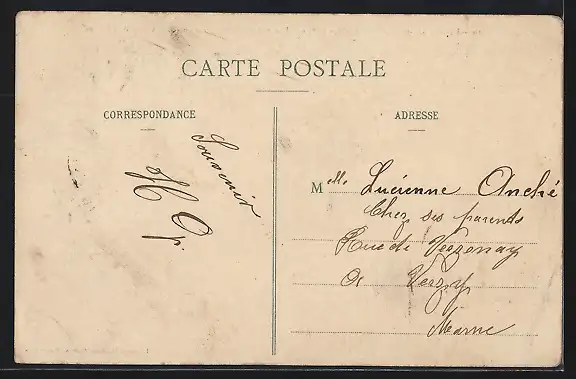 CARTE POSTALE
CORRESPONDANCE
Souvenir
H
ADRESSE
Melle Lucienne Anché
Chez ses parents
Rue de Verzenay
a Verzy
Marne